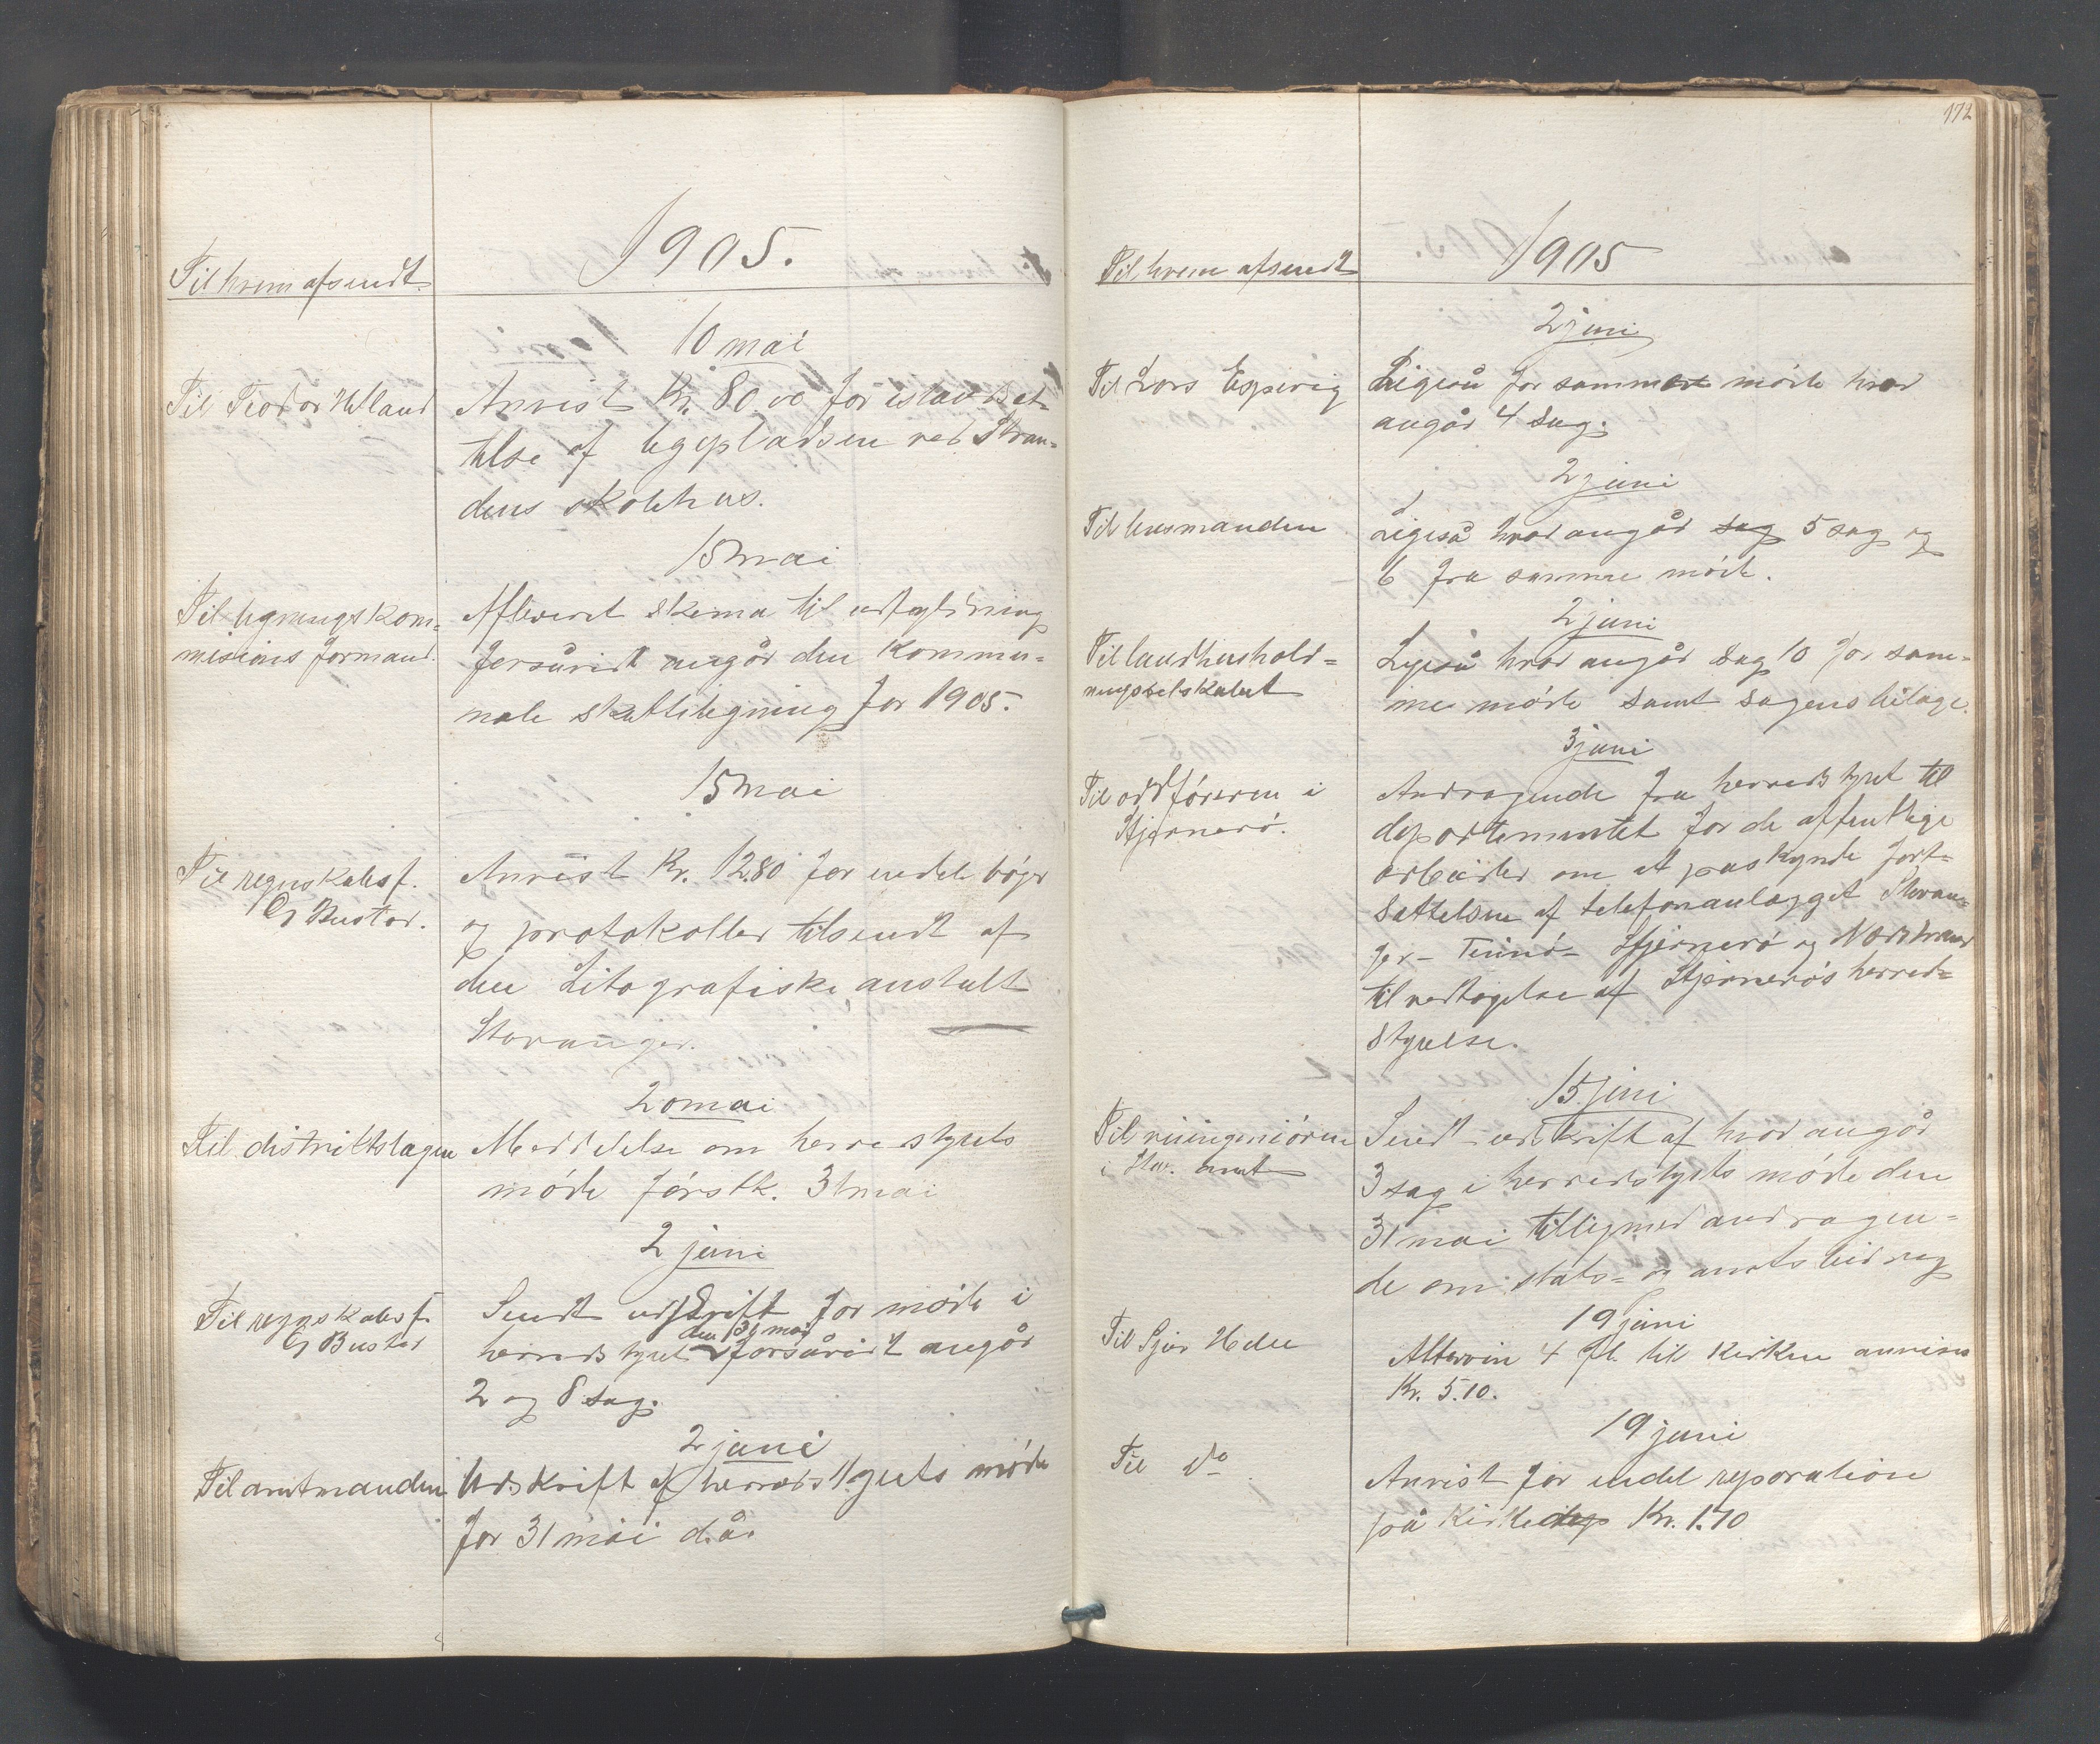 1905.
Til hvem afsendt
10 mai
Til Teodor Helland
Anvist Kr. 80.00 for istandset-
telse af legepladsen ved Stran-
dens skolehus.
15 mai
Til ligningskom-
misions formand.
Afleveret skema til udfyldning
forsåvidt angår den kommu-
nale skatteligning for 1905.
15 mai
Til regnskabsf.
Bustad.
Anvist Kr. 12.80 for endel bøger
og protokoller tilsendt af
den Litografiske anstalt
Stavanger.
20 mai
Til distriktslægen
Meddelse om herredstyrets
møde førstk. 31 mai
2 juni
Til regnskabsf.
Bustad
Sendt udskrift for møde i
den 31 mai
herredstyret forsåvidt angår
2 og 8 sag.
2 juni
Til amtmanden
Udskrift af herredstyrets møde
for 31 mai d.å.
172
1905
Til hvem afsendt
2 juni
Til Lars Espevig
Ligeså for samme møde hvad
angår 4 sag.
2 juni
Til lensmanden
Ligeså hvad angår sag 5 sag og
6 fra samme møde.
2 juni
Til landhushold=
ningsselskabet
Ligeså hvad angår sag 10 for sam=
me møde samt sagens bilage.
3 juni
Til ordføreren i
Stjernerø.
Andragende fra herredstyret til
departementet for de offentlige
arbeider om at påskynde fort=
sættelsen af telefonanlægget Stavan=
ger - Finnø - Stjernerø og Nærstrand
til vedtagelse af Stjernerøs herred=
styrelse.
15 juni
Til veiingeniøren
i Stav. amt
Sendt udskrift af hvad angår
3 sag i herredstyrets møde den
31 mai tilligemed andragen=
de om stats= og amtsbidrag
19 juni
Til Sjur Hedle
Altervin 4 fl. til kirken anvises
Kr. 5.10.
19 juni
Til do.
Anvist for endel reparation
på kirken Kr. 1.70